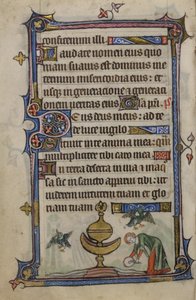 conficemini illi
Laudate nomen eius quo
niam suavis est dominus in e
ternum misericordia eius: et
usqz in generacione et generaci
onem veritas eius
Deus deus meus: ad te
de luce vigilo
Sitivit in te anima mea: quam
multipliciter tibi caro mea
In terra deserta in via et inaqu
sa: sic in sancto apparui tibi: ut
viderem virtutem tuam et glo
riam tuam